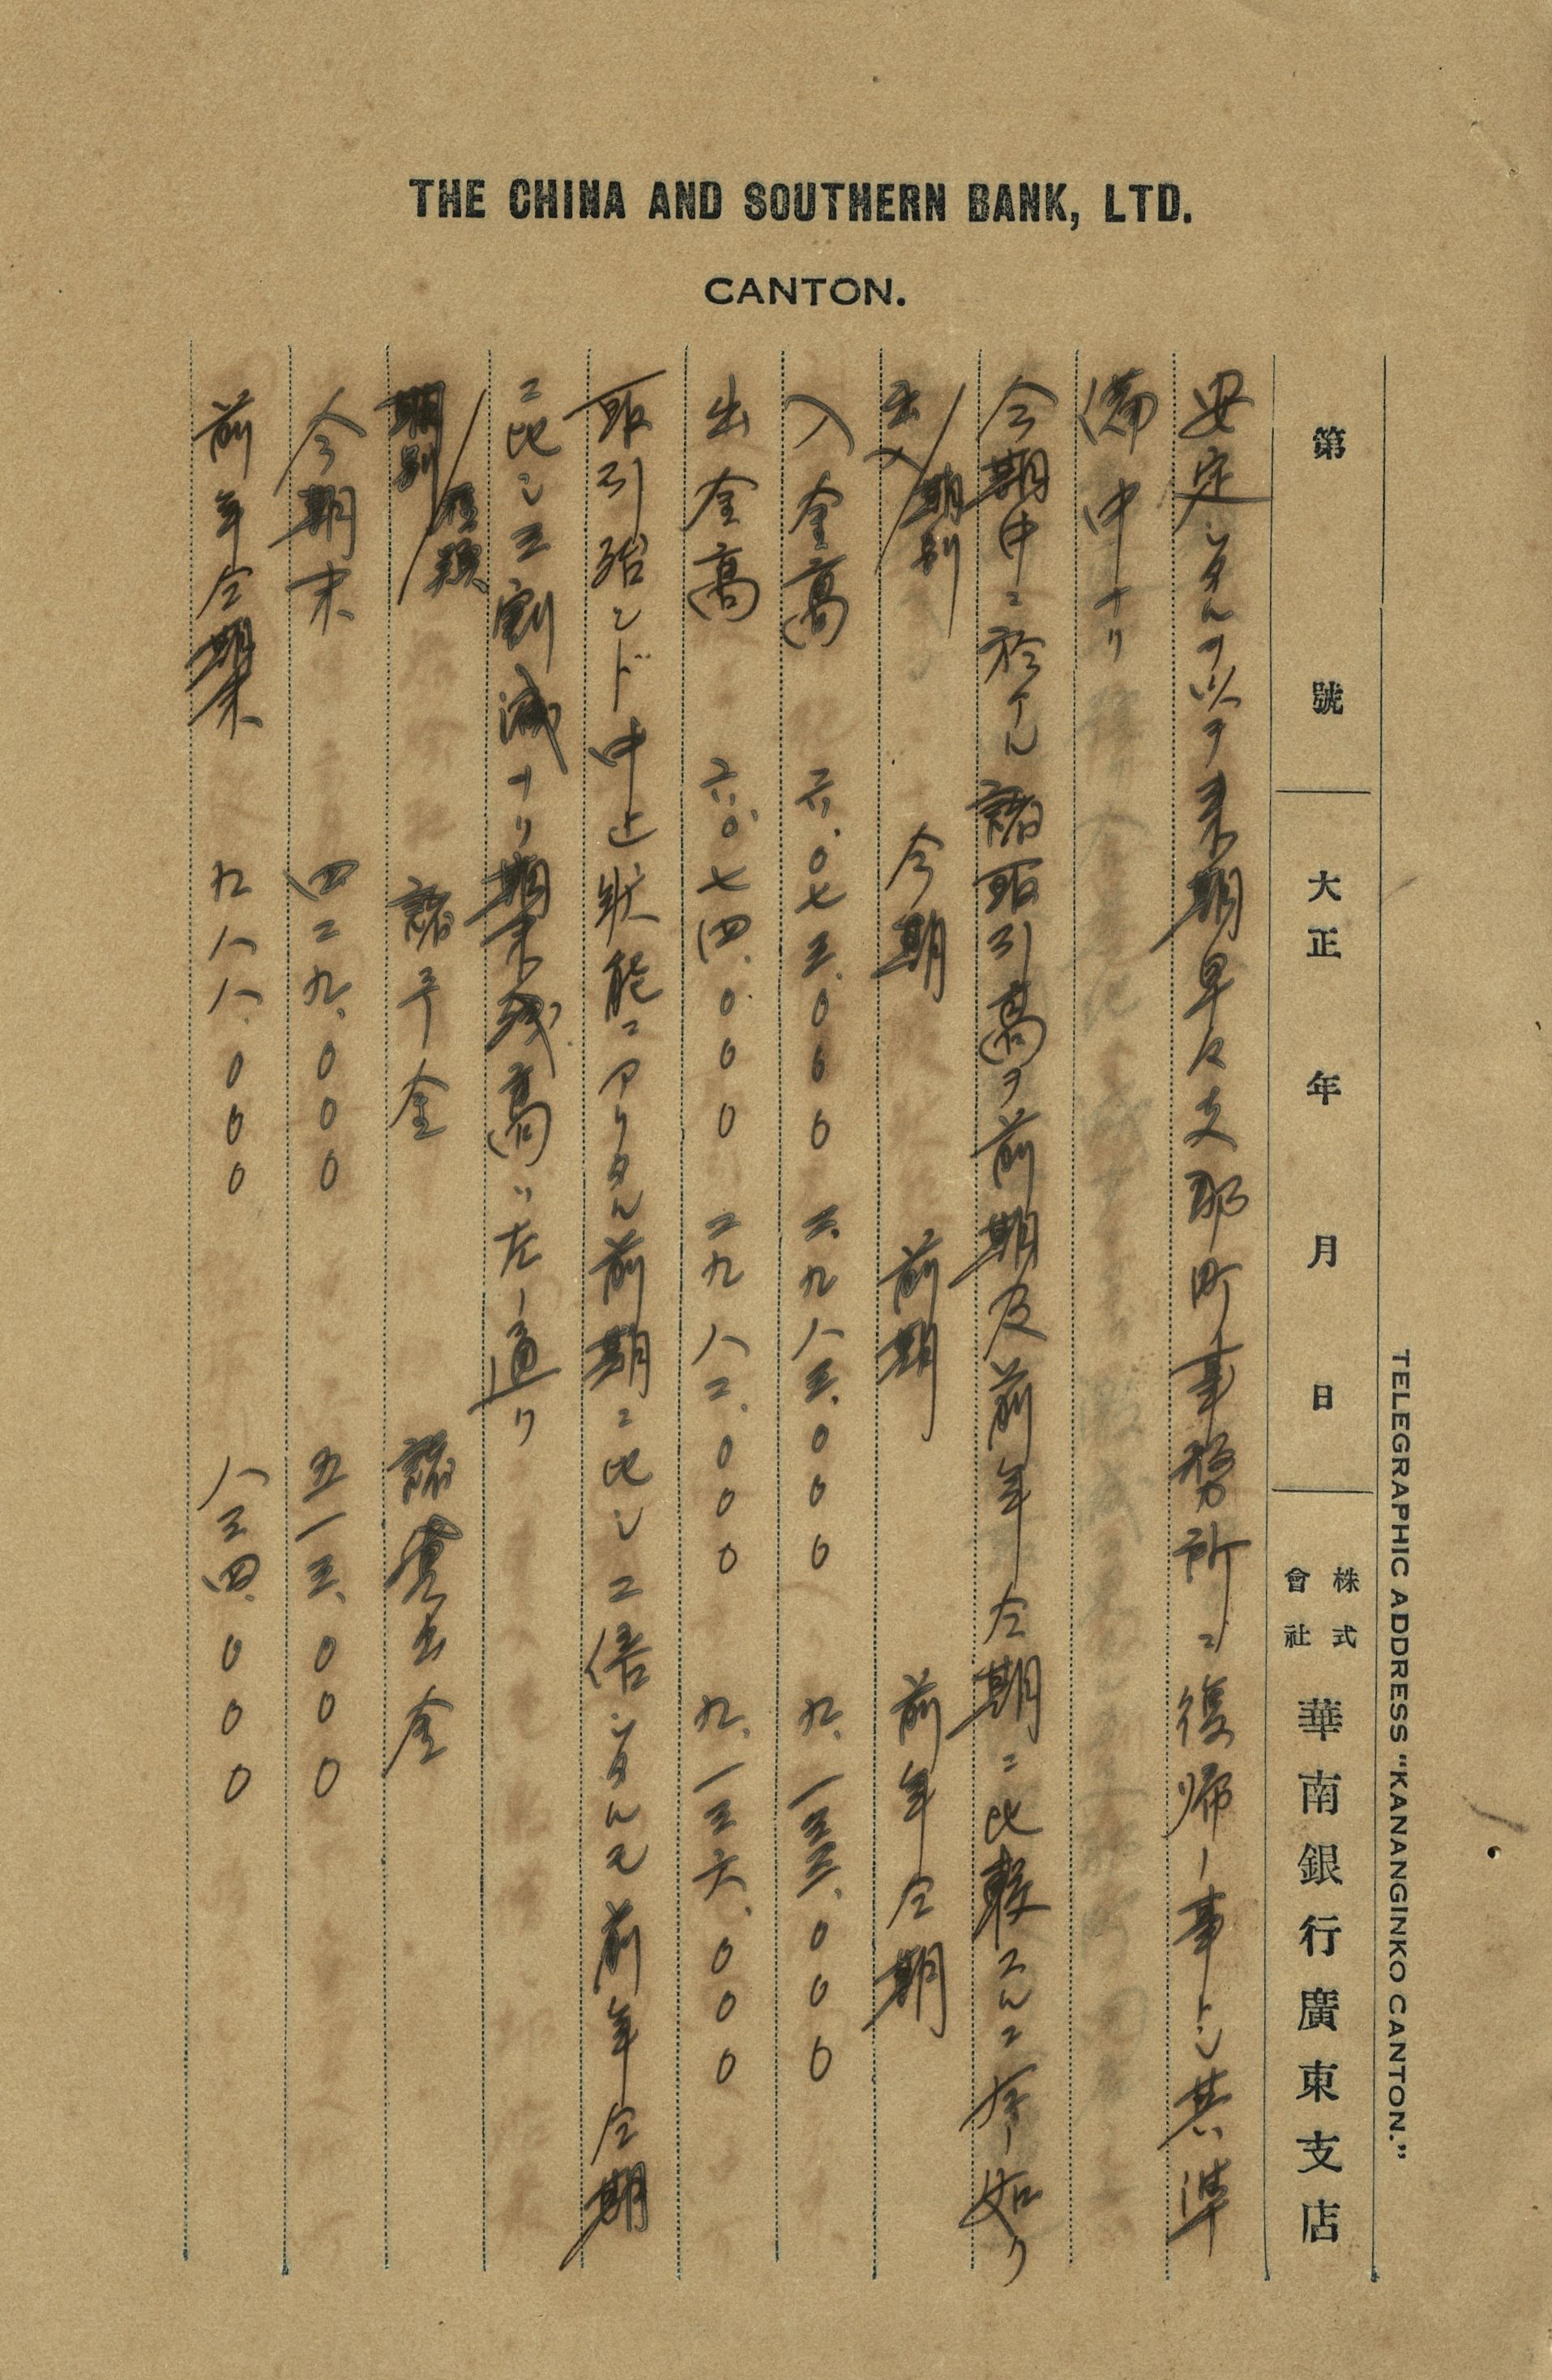 THE CHINA AND SOUTHERN BANK, LTD.
CANTON.
TELEGRAPHIC ADDRESS "KANANGINKO CANTON."
第 號 大正 年 月 日 株式會社 華南銀行廣東支店
安定シタルヲ以テ来期早々支那町事務所ニ復帰ノ事トシ其準
備中ナリ
今期中ニ於ケル諸取引高ヲ前期及前年仝期ニ比較スルニ左ノ如リ
出入/期別 今期 前期 前年仝期
入金高 六.〇七三.〇〇〇 三.九八三.〇〇〇 九.一三三.〇〇〇
出金高 六.〇七四.〇〇〇 二九八二.〇〇〇 九.一三六.〇〇〇
取引殆ンド中止状態ニアリタル前期ニ比シ二倍シタルモ前年仝期
ニ比シ三割減ナリ期末残高ハ左ノ通リ
期別/種類 諸予金 諸貸出金
今期末 四二九.〇〇〇 五一三.〇〇〇
前年仝期末 九八八.〇〇〇 八三四.〇〇〇